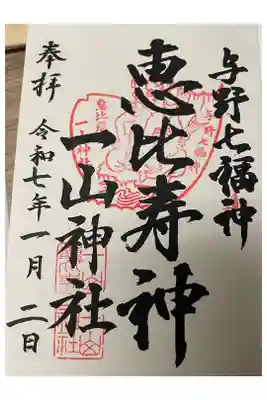 与野七福神
恵比寿神
一山神社
奉拝 令和七年一月二日